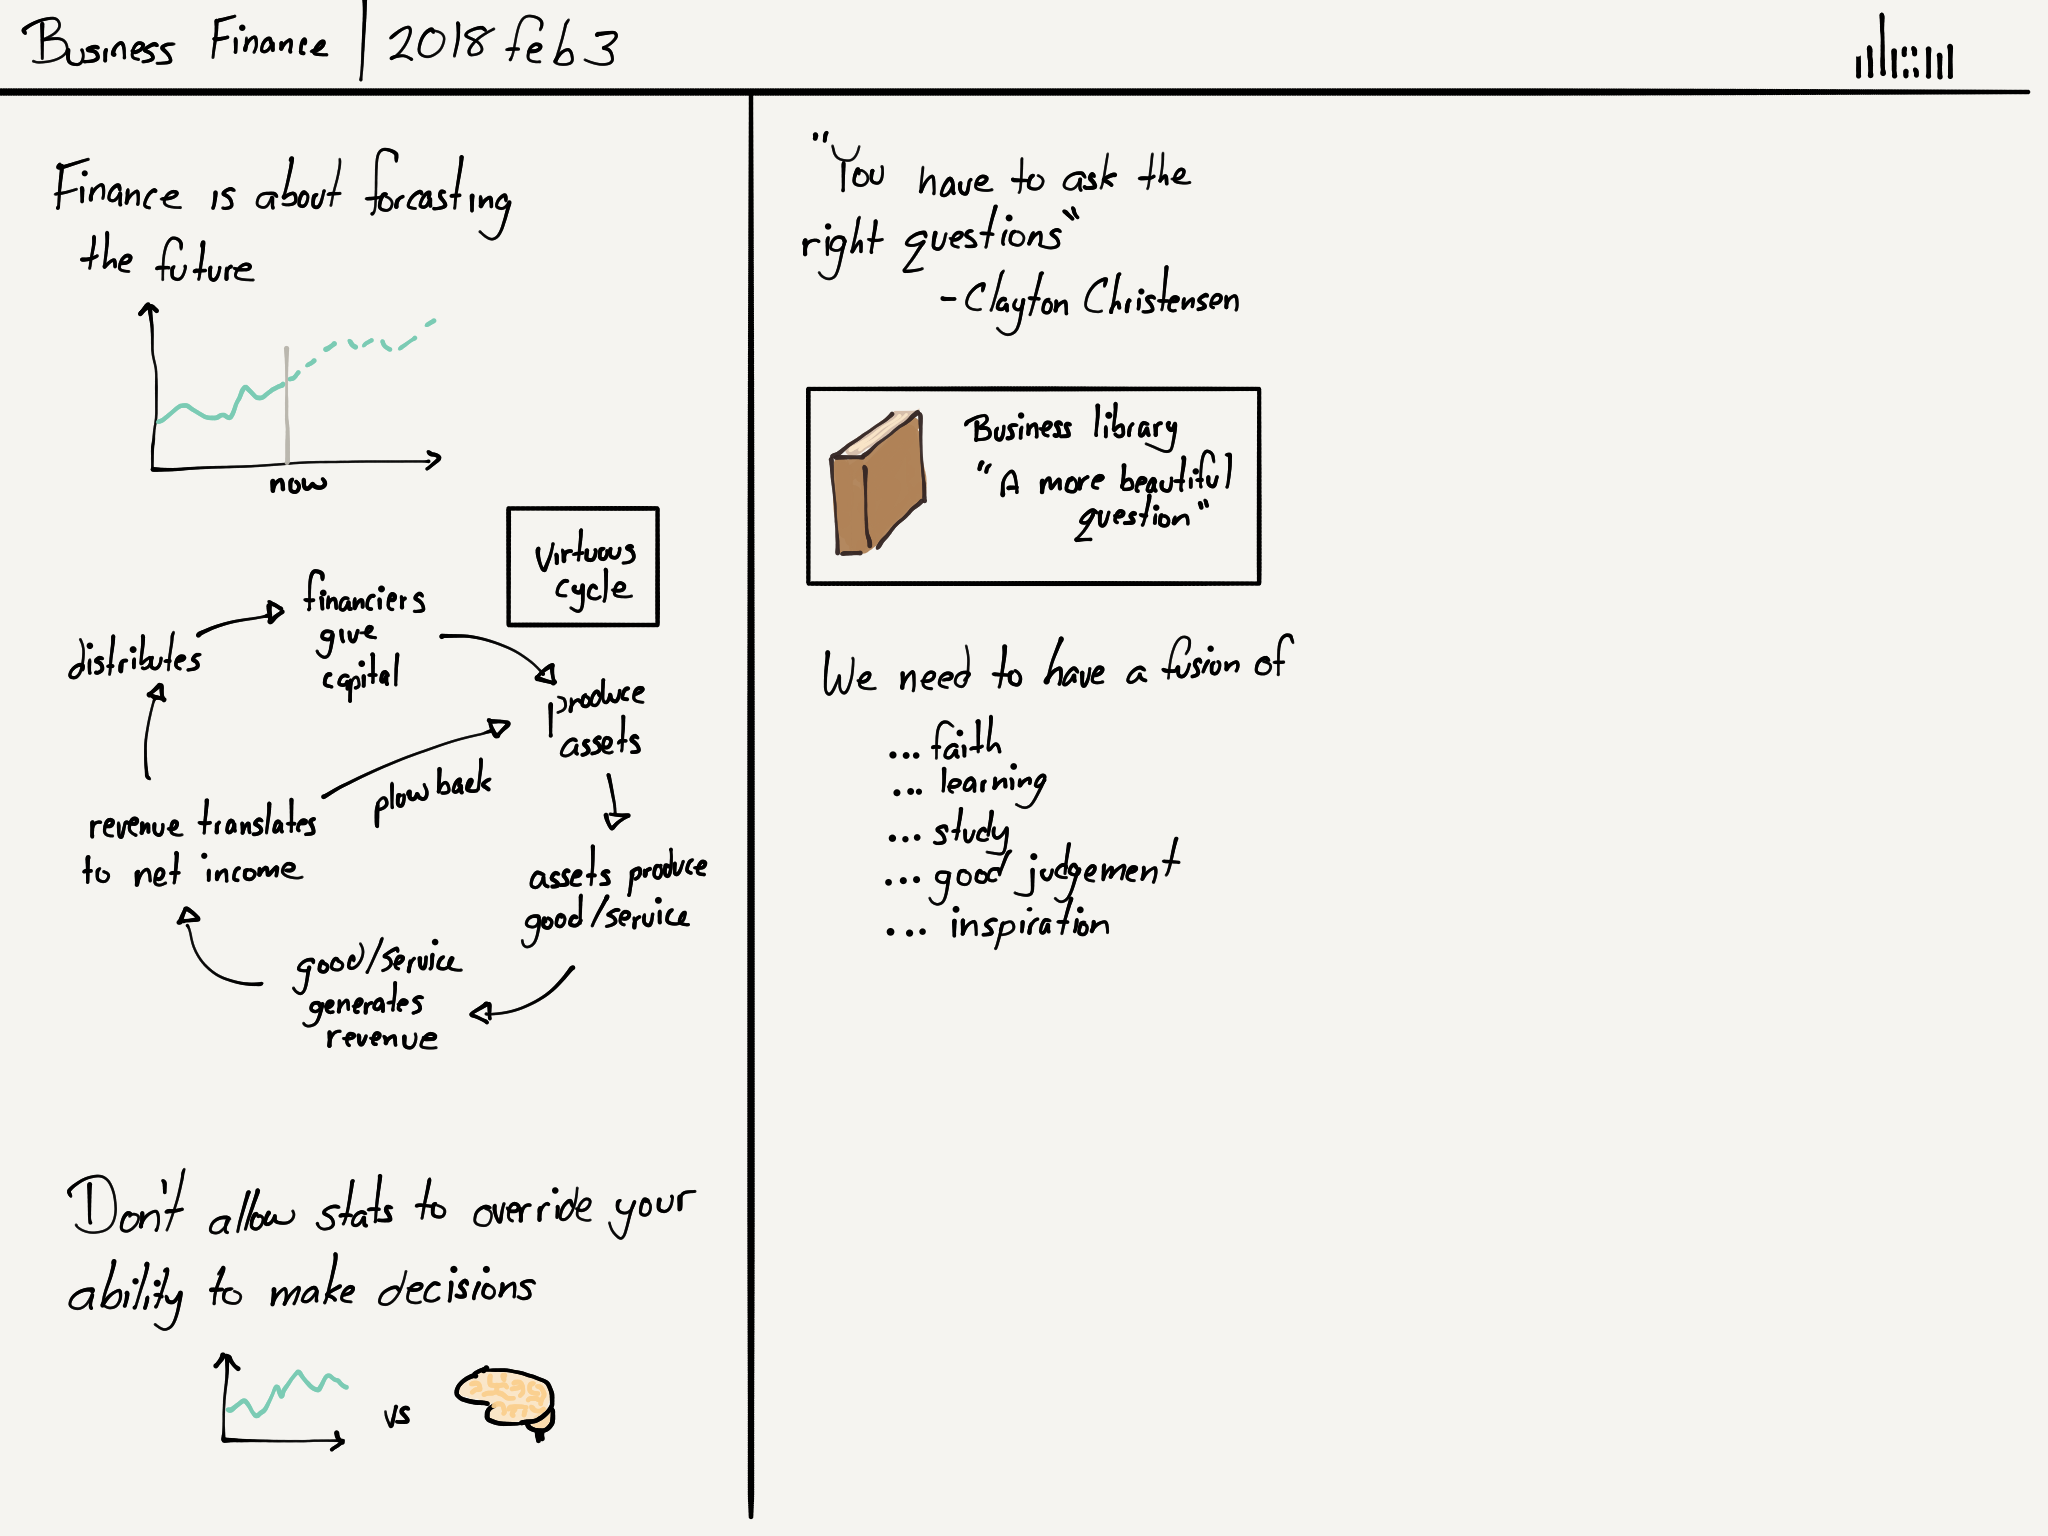 Business Finance | 2018 feb 3
Finance is about forcasting
the future
now
Virtuous
cycle
financiers
give
capital
distributes
produce
assets
plow back
revenue translates
to net income
assets produce
good/service
good/service
generates
revenue
Don't allow stats to override your
ability to make decisions
vs
"You have to ask the
right questions"
- Clayton Christensen
Business library
"A more beautiful
question"
We need to have a fusion of
... faith
... learning
... study
... good judgement
... inspiration